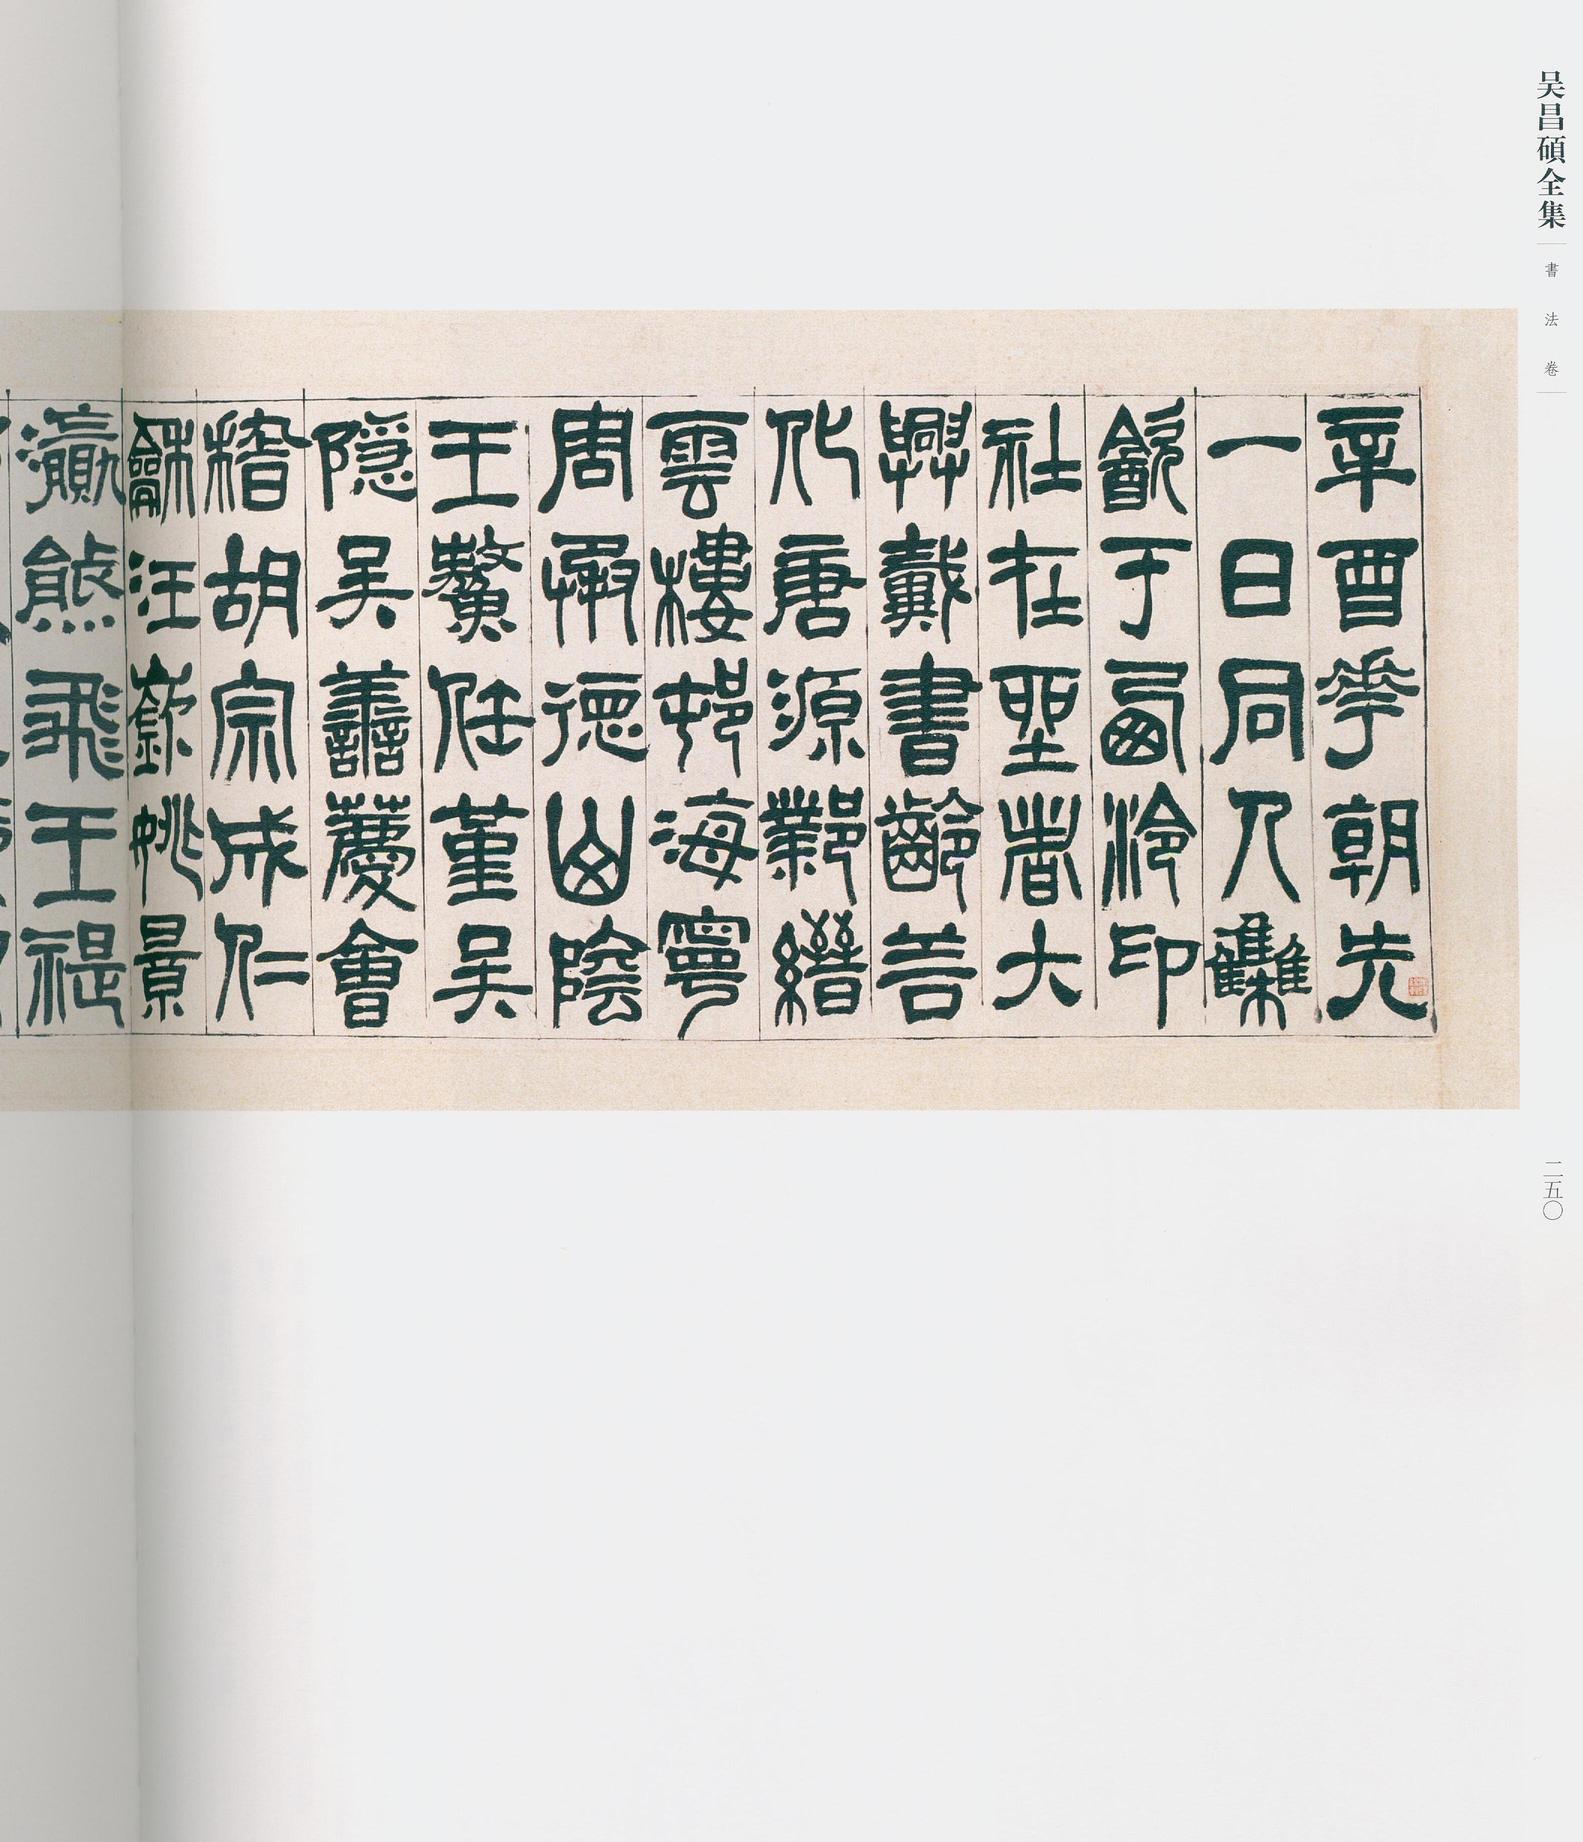 吴昌碩全集
書法卷
辛酉花朝先
一日同人雧
㱃于西泠印
社在坐者大
興戴書齡善
化唐源鄴縉
雲樓邨海寧
周承德山陰
王任堇吴
隱吴譱慶會
稽胡宗成仁
龢汪嶔姚景
瀛熊飛王禔
二五〇